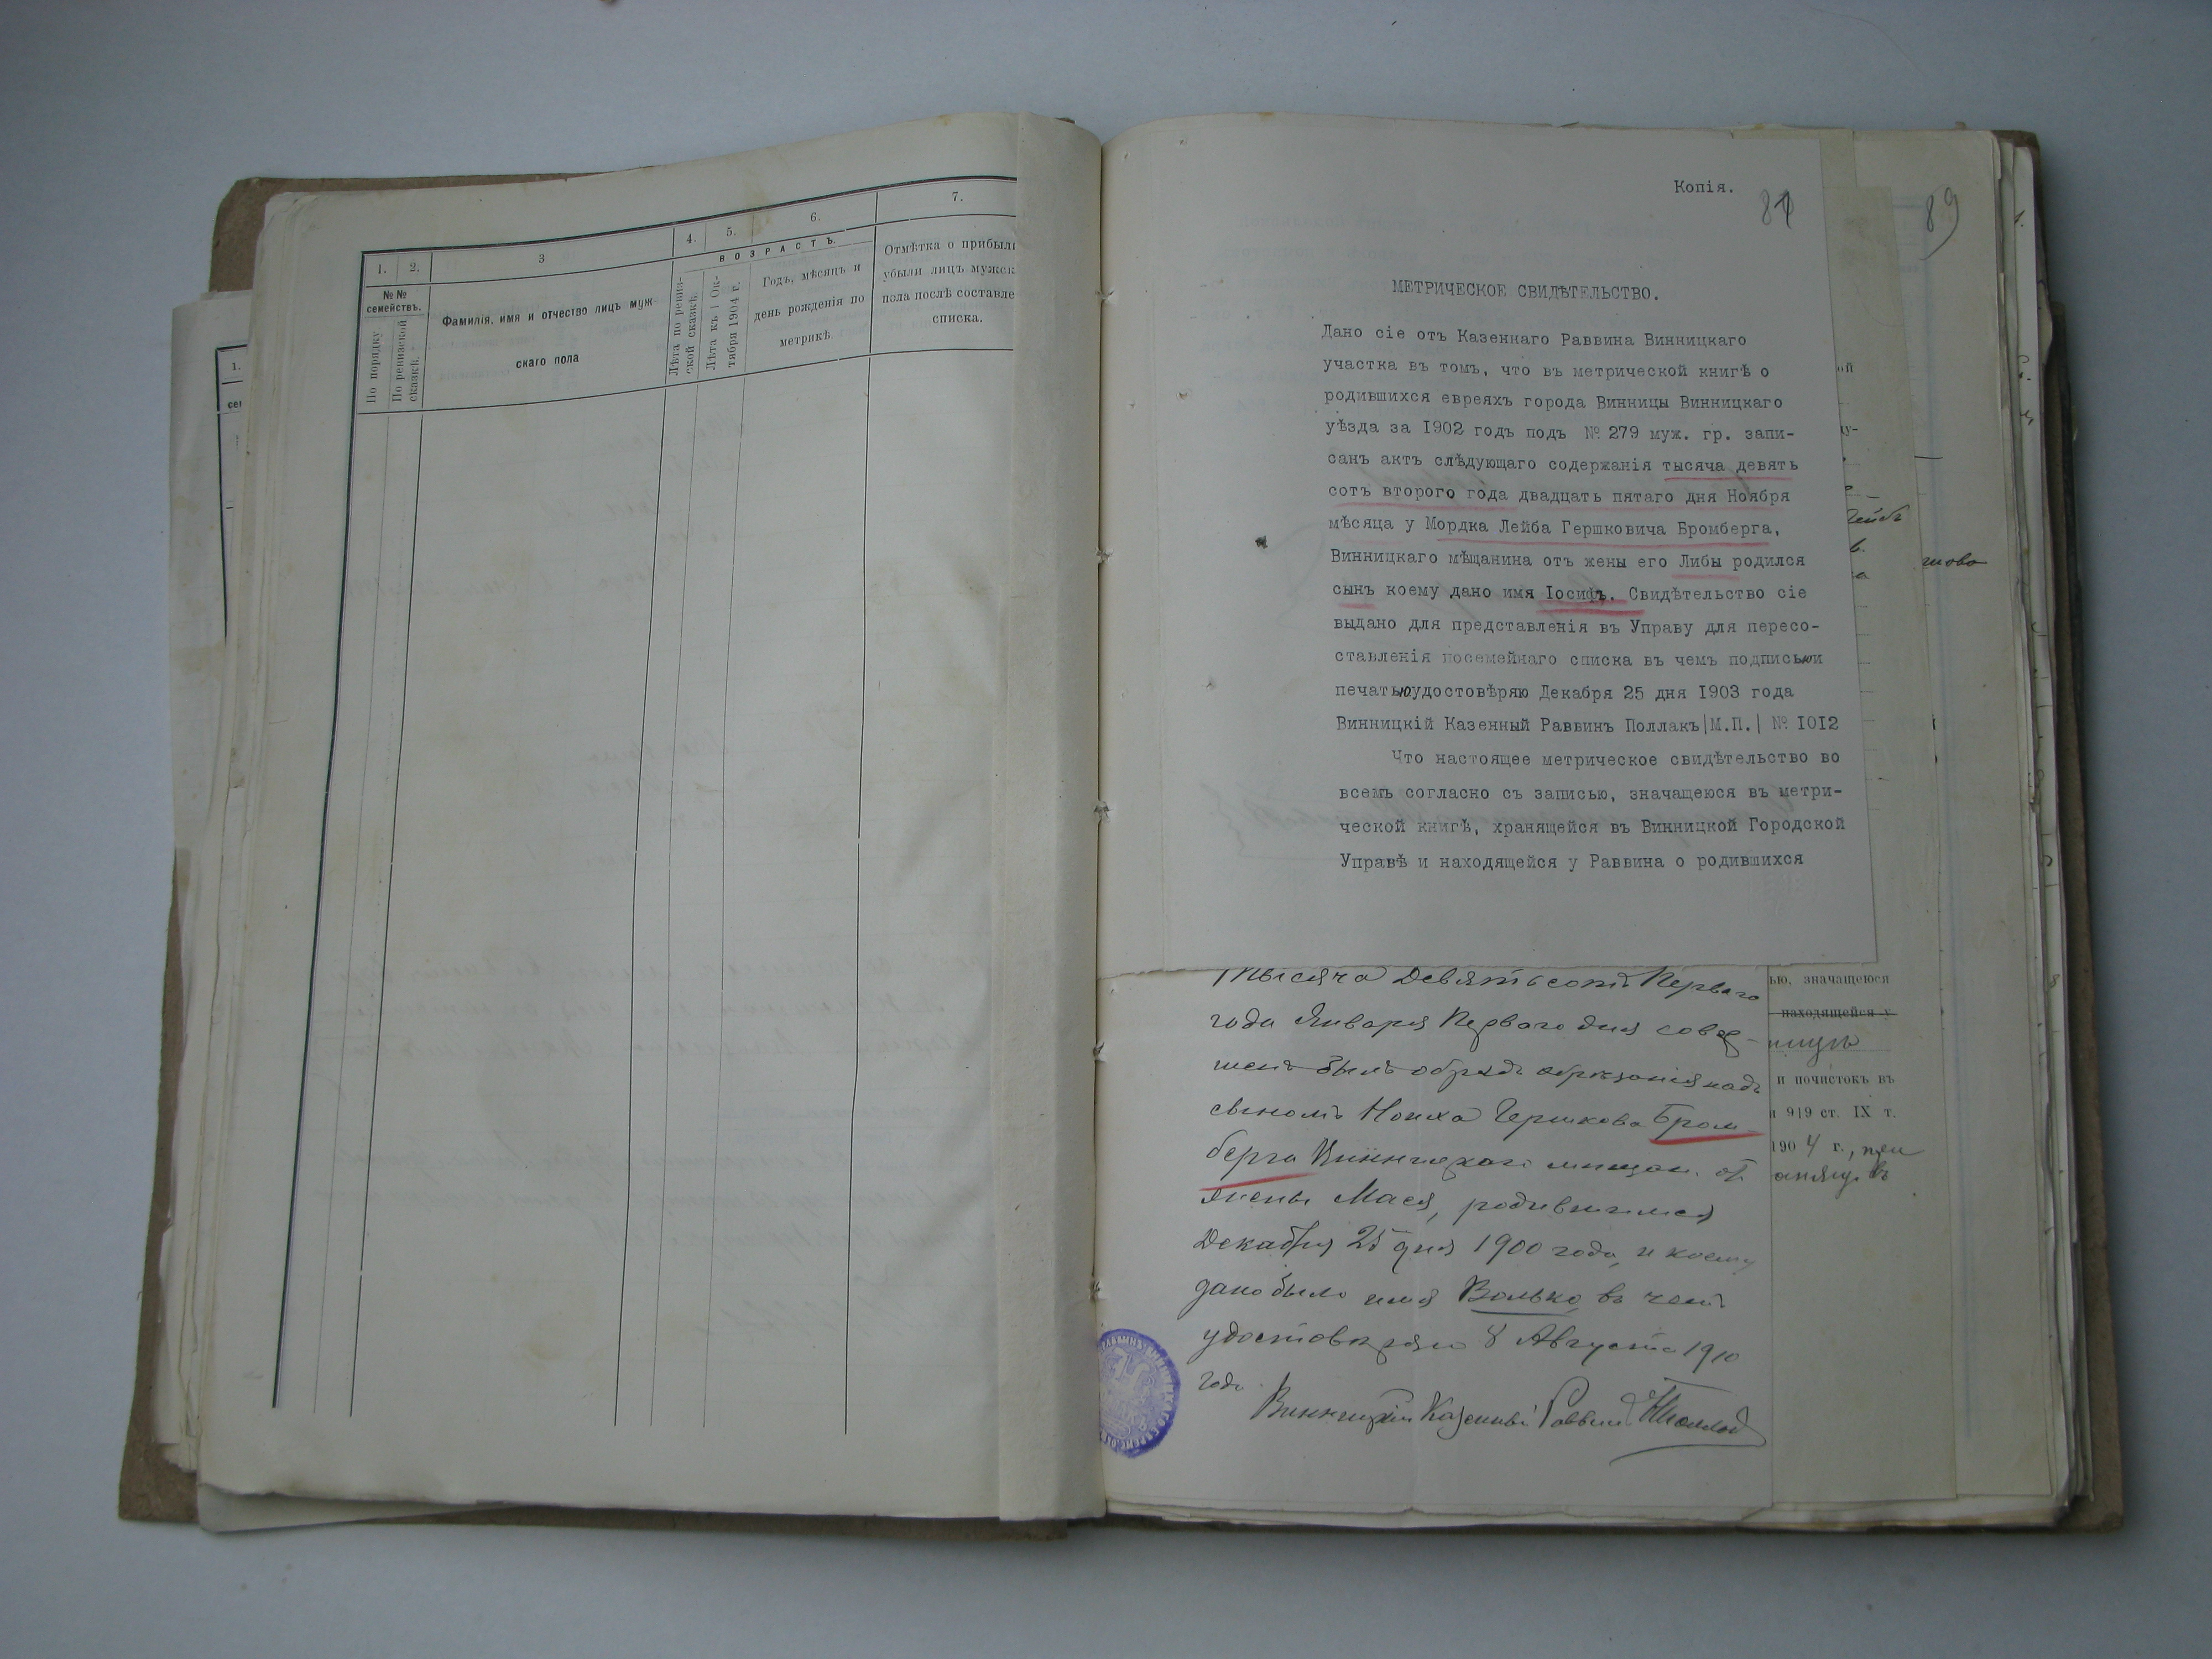 1.
1. 2. 3 4. 5. 6. 7.
№№ семействъ.
По порядку
По ревизской сказкѣ.
Фамилія, имя и отчество лицъ муж-
скаго пола
ВОЗРАСТЪ.
Лѣта по ревиз-
ской сказкѣ.
Лѣта къ 1 Ок-
тября 1904 г.
Годъ, мѣсяцъ и
день рожденія по
метрикѣ.
Отмѣтка о прибыли
убыли лицъ мужск
пола послѣ составле
списка.
Копія.
89
МЕТРИЧЕСКОЕ СВИДѢТЕЛЬСТВО.
Дано сіе отъ Казеннаго Раввина Винницкаго
участка въ томъ, что въ метрической книгѣ о
родившихся евреяхъ города Винницы Винницкаго
уѣзда за 1902 годъ подъ № 279 муж. гр. запи-
санъ актъ слѣдующаго содержанія тысяча девять
сотъ второго года двадцать пятаго дня Ноября
мѣсяца у Мордка Лейба Гершковича Бромберга,
Винницкаго мѣщанина отъ жены его Либы родился
сынъ коему дано имя Іосифъ. Свидѣтельство сіе
выдано для представленія въ Управу для пересо-
ставленія посемейнаго списка въ чемъ подписью и
печатью удостовѣряю Декабря 25 дня 1903 года
Винницкій Казенный Раввинъ Поллакъ|М.П.| № 1012
Что настоящее метрическое свидѣтельство во
всемъ согласно съ записью, значащеюся въ метри-
ческой книгѣ, хранящейся въ Винницкой Городской
Управѣ и находящейся у Раввина о родившихся
Тысяча Девятьсотъ Перваго
года Января Перваго дня совер-
шенъ былъ обрядъ обрѣзанія надъ
сыномъ Гершкова Бром-
берга Винницкаго мѣщан. отъ
жены Мася, родившимся
Декабря 25 дня 1900 года, и коему
дано было имя Волько въ чемъ
удостовѣряю 8 Августа 1910
года
Винницкій Казенный Раввинъ
ью, значащеюся
находящейся у
и почистокъ въ
919 ст. IX т.
1904 г.,